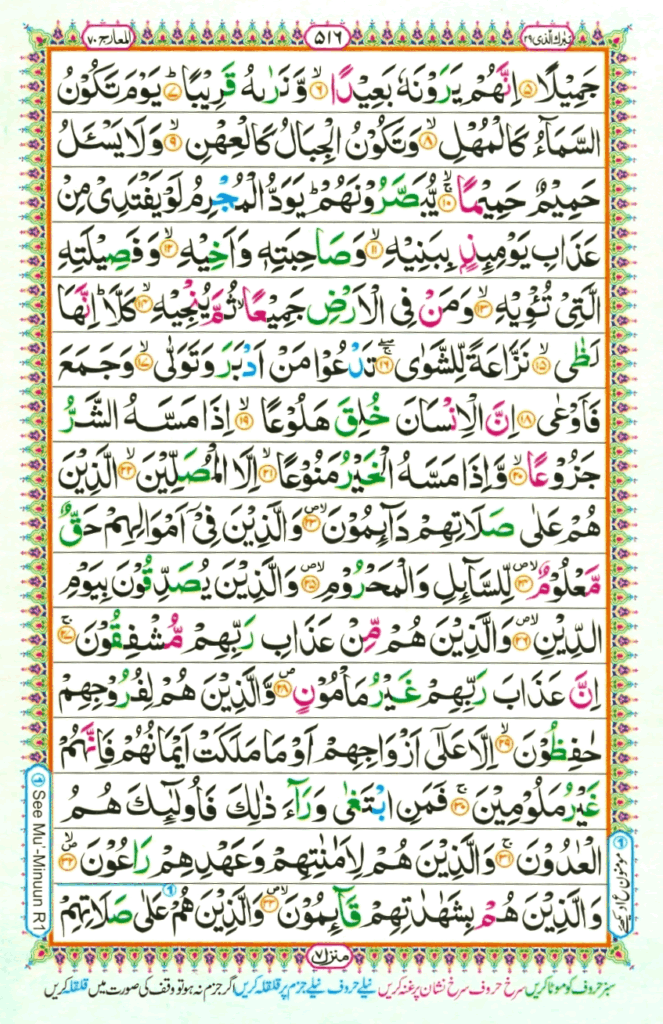 تبٰرك الذی ٢٩
٥١٦
المعارج ٧٠
جَمِیْلًا ۝٥ اِنَّهُمْ یَرَوْنَهٗ بَعِیْدًا ۙ۝٦ وَّنَرٰىهُ قَرِیْبًا ؕ۝٧ یَوْمَ تَكُوْنُ
السَّمَآءُ كَالْمُهْلِ ۙ۝٨ وَتَكُوْنُ الْجِبَالُ كَالْعِهْنِ ۙ۝٩ وَلَا یَسْـَٔلُ
حَمِیْمٌ حَمِیْمًا ۚۖ۝١٠ یُّبَصَّرُوْنَهُمْ ؕ یَوَدُّ الْمُجْرِمُ لَوْ یَفْتَدِیْ مِنْ
عَذَابِ یَوْمِىِٕذٍۭ بِبَنِیْهِ ۙ۝١١ وَصَاحِبَتِهٖ وَاَخِیْهِ ۙ۝١٢ وَفَصِیْلَتِهِ
الَّتِیْ تُـْٔوِیْهِ ۙ۝١٣ وَمَنْ فِی الْاَرْضِ جَمِیْعًا ۙ ثُمَّ یُنْجِیْهِ ۙ۝١٤ كَلَّا ؕ اِنَّهَا
لَظٰی ۙ۝١٥ نَزَّاعَةً لِّلشَّوٰی ۚۖ۝١٦ تَدْعُوْا مَنْ اَدْبَرَ وَتَوَلّٰی ۙ۝١٧ وَجَمَعَ
فَاَوْعٰی ۝١٨ اِنَّ الْاِنْسَانَ خُلِقَ هَلُوْعًا ۙ۝١٩ اِذَا مَسَّهُ الشَّرُّ
جَزُوْعًا ۙ۝٢٠ وَّاِذَا مَسَّهُ الْخَیْرُ مَنُوْعًا ۙ۝٢١ اِلَّا الْمُصَلِّیْنَ ۙ۝٢٢ الَّذِیْنَ
هُمْ عَلٰی صَلَاتِهِمْ دَآىِٕمُوْنَ ۪ۙ۝٢٣ وَالَّذِیْنَ فِیْۤ اَمْوَالِهِمْ حَقٌّ
مَّعْلُوْمٌ ۪ۙ۝٢٤ لِّلسَّآىِٕلِ وَالْمَحْرُوْمِ ۪ۙ۝٢٥ وَالَّذِیْنَ یُصَدِّقُوْنَ بِیَوْمِ
الدِّیْنِ ۪ۙ۝٢٦ وَالَّذِیْنَ هُمْ مِّنْ عَذَابِ رَبِّهِمْ مُّشْفِقُوْنَ ۚ۝٢٧
اِنَّ عَذَابَ رَبِّهِمْ غَیْرُ مَاْمُوْنٍ ۪۝٢٨ وَالَّذِیْنَ هُمْ لِفُرُوْجِهِمْ
حٰفِظُوْنَ ۙ۝٢٩ اِلَّا عَلٰۤی اَزْوَاجِهِمْ اَوْ مَا مَلَكَتْ اَیْمَانُهُمْ فَاِنَّهُمْ
غَیْرُ مَلُوْمِیْنَ ۚ۝٣٠ فَمَنِ ابْتَغٰی وَرَآءَ ذٰلِكَ فَاُولٰٓىِٕكَ هُمُ
الْعٰدُوْنَ ۚ۝٣١ وَالَّذِیْنَ هُمْ لِاَمٰنٰتِهِمْ وَعَهْدِهِمْ رَاعُوْنَ ۪ۙ۝٣٢
وَالَّذِیْنَ هُمْ بِشَهٰدٰتِهِمْ قَآىِٕمُوْنَ ۪ۙ۝٣٣ وَالَّذِیْنَ هُمْ عَلٰی صَلَاتِهِمْ
١ See Mu'-Minuun R1
١ مومنون ع ١ دیکھئے
منزل ٧
سبز حروف کو موٹا کریں سرخ حروف سرخ نشان پر غنہ کریں نیلے حروف نیلے جزم پر قلقلہ کریں اگر جزم نہ ہو تو وقف کی صورت میں قلقلہ کریں